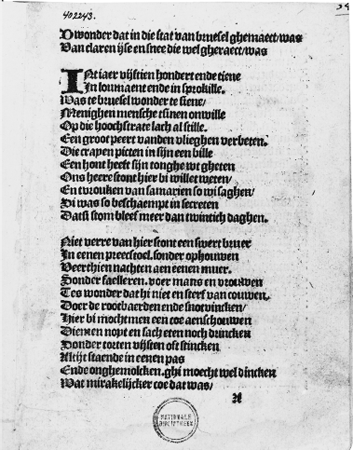 402243.
Dwonder dat in die stat van bruesel ghemaect/was
Van claren ijse en snee die wel gheraect/was
INt iaer vijftien hondert ende tiene
In louwmaent ende in sprokille.
Was te bruesel wonder te siene/
Menighen mensche tsinen onwille
Op die hoochstrate lach al stille.
Een groot peert vanden vlieghen verbeten.
Die crapen picten in sijn een bille
Een hont heeft sijn tonghe wt gheten
Ons heere stont hier bi willet weten/
En tvrouken van samarien so wi saghen/
Hi was so beschaempt in secreten
Datst stom bleef meer dan twintich daghen.
Niet verre van hier stont een swert bruer
In eenen preecstoel. sonder ophouwen
Veerthien nachten aen eenen muer.
Sonder faelleren. voer mans en vrouwen
Tes wonder dat hi niet en sterf van couwen.
Doer de rootbaerden ende snotvincken/
Hier bi mocht men een coe aenschouwen
Die en nopt en sach eten noch drincken
Sonder torten vijsten oft stincken
Altijt staende in eenen pas
Ende onghemolcken. ghi moecht wel dincken
Wat mirakelijcker coe dat was/
A
NATIONALE
BIBLIOTHEEK